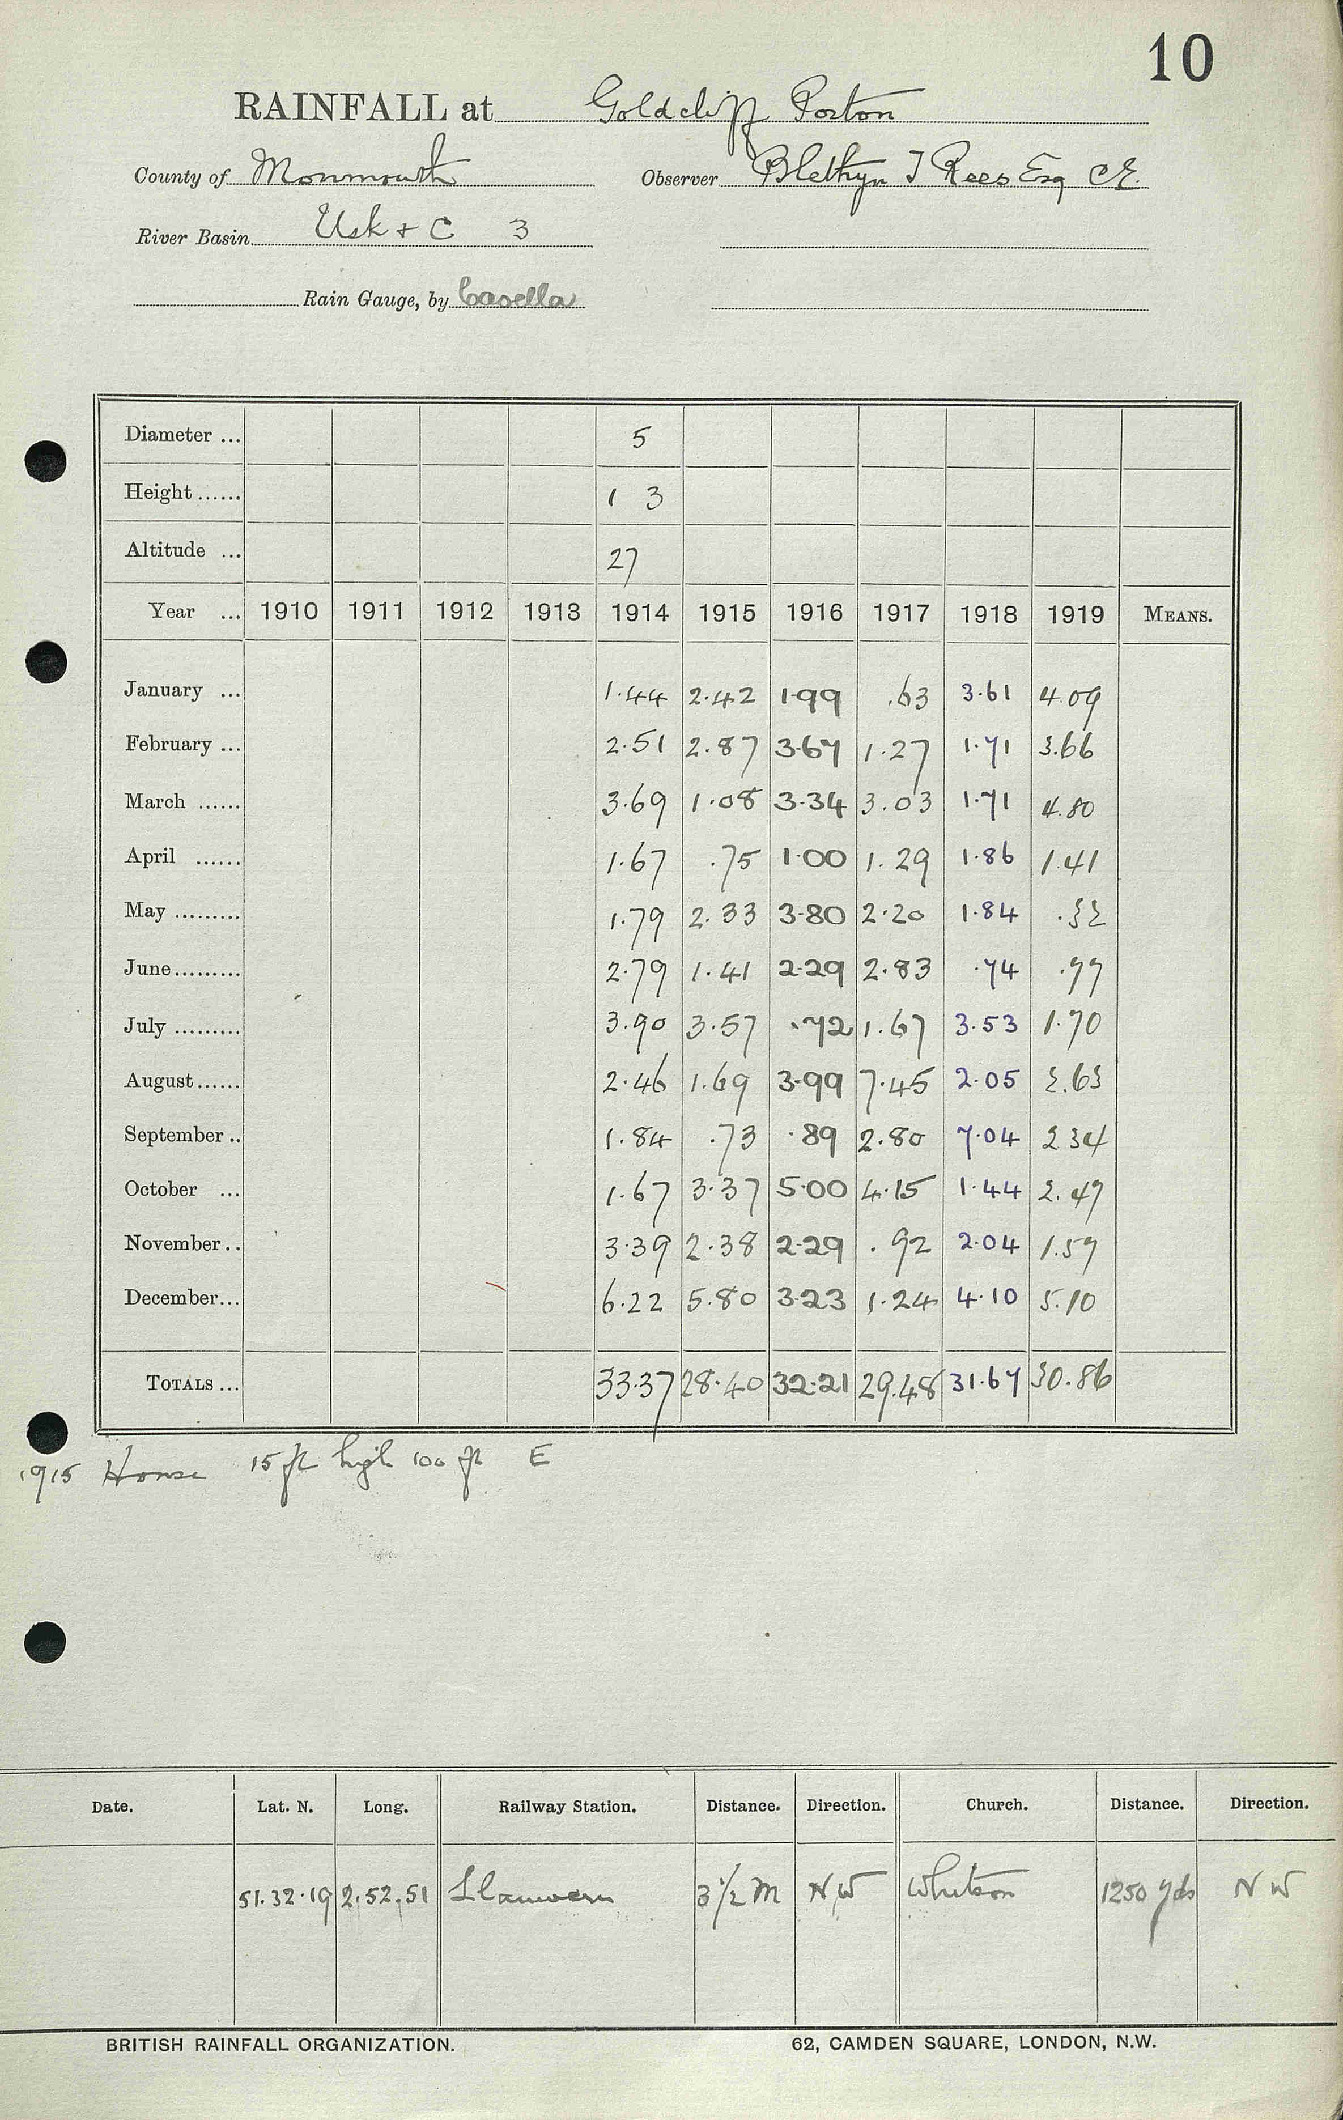 10
RAINFALL at Goldcliff Porton
County of Monmouth Observer Blethyn T Rees Esq CE.
River Basin Usk + C 3
Rain Gauge, by Casella
Diameter ... 5
Height ...... 1 3
Altitude ... 27
Year ... 1910 1911 1912 1913 1914 1915 1916 1917 1918 1919 MEANS.
January ... 1.44 2.42 1.99 .63 3.61 4.09
February ... 2.51 2.87 3.67 1.27 1.71 3.66
March ...... 3.69 1.08 3.34 3.03 1.71 4.80
April ...... 1.67 .75 1.00 1.29 1.86 1.41
May ......... 1.79 2.33 3.80 2.20 1.84 .32
June ......... 2.79 1.41 2.29 2.83 .74 .77
July ......... 3.90 3.57 .72 1.67 3.53 1.70
August ...... 2.46 1.69 3.99 7.45 2.05 2.63
September .. 1.84 .73 .89 2.80 7.04 2 34
October ... 1.67 3.37 5.00 4.15 1.44 2.47
November .. 3.39 2.38 2.29 .92 2.04 1.57
December ... 6.22 5.80 3.23 1.24 4.10 5.10
TOTALS ... 33.37 28.40 32.21 29.48 31.67 30.86
1915 House 15 ft high 100 ft E
Date. Lat. N. Long. Railway Station. Distance. Direction. Church. Distance. Direction.
51.32.19 2.52.51 Llanwern 3 1/2 M N W Whitson 1250 yds N W
BRITISH RAINFALL ORGANIZATION. 62, CAMDEN SQUARE, LONDON, N.W.